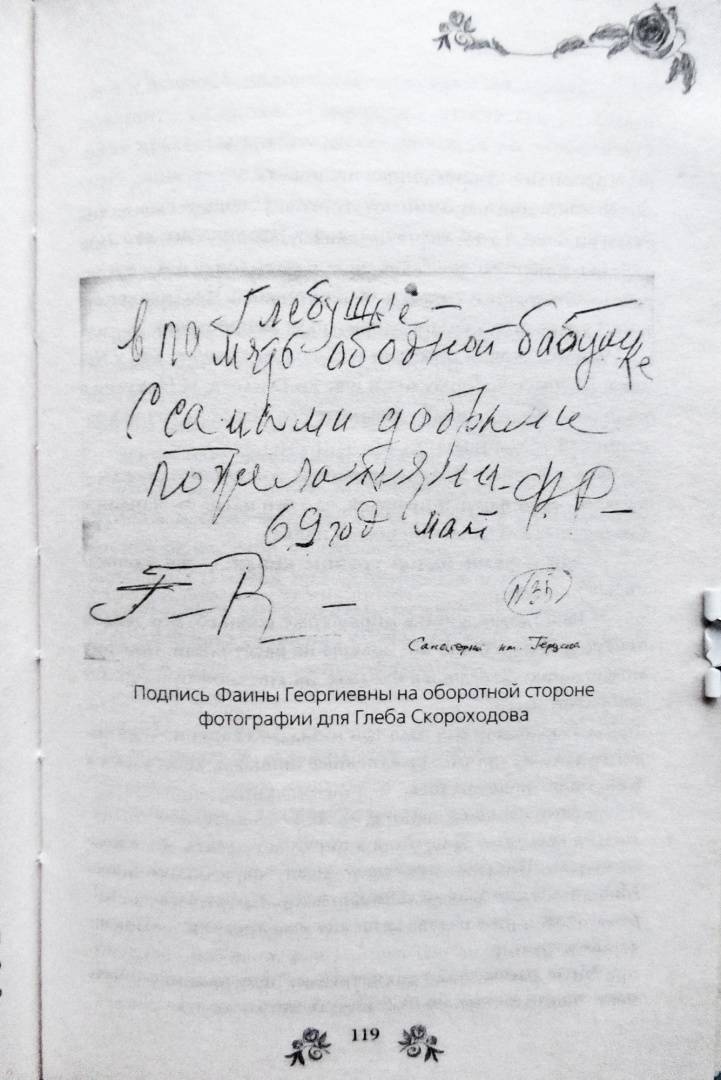 Глебушке –
в память об одной бабушке
С самыми добрыми
пожеланиями – Ф.Р –
69 год май
F – R –
N 35
Санаторий им. Герцена
Подпись Фаины Георгиевны на оборотной стороне
фотографии для Глеба Скороходова
119